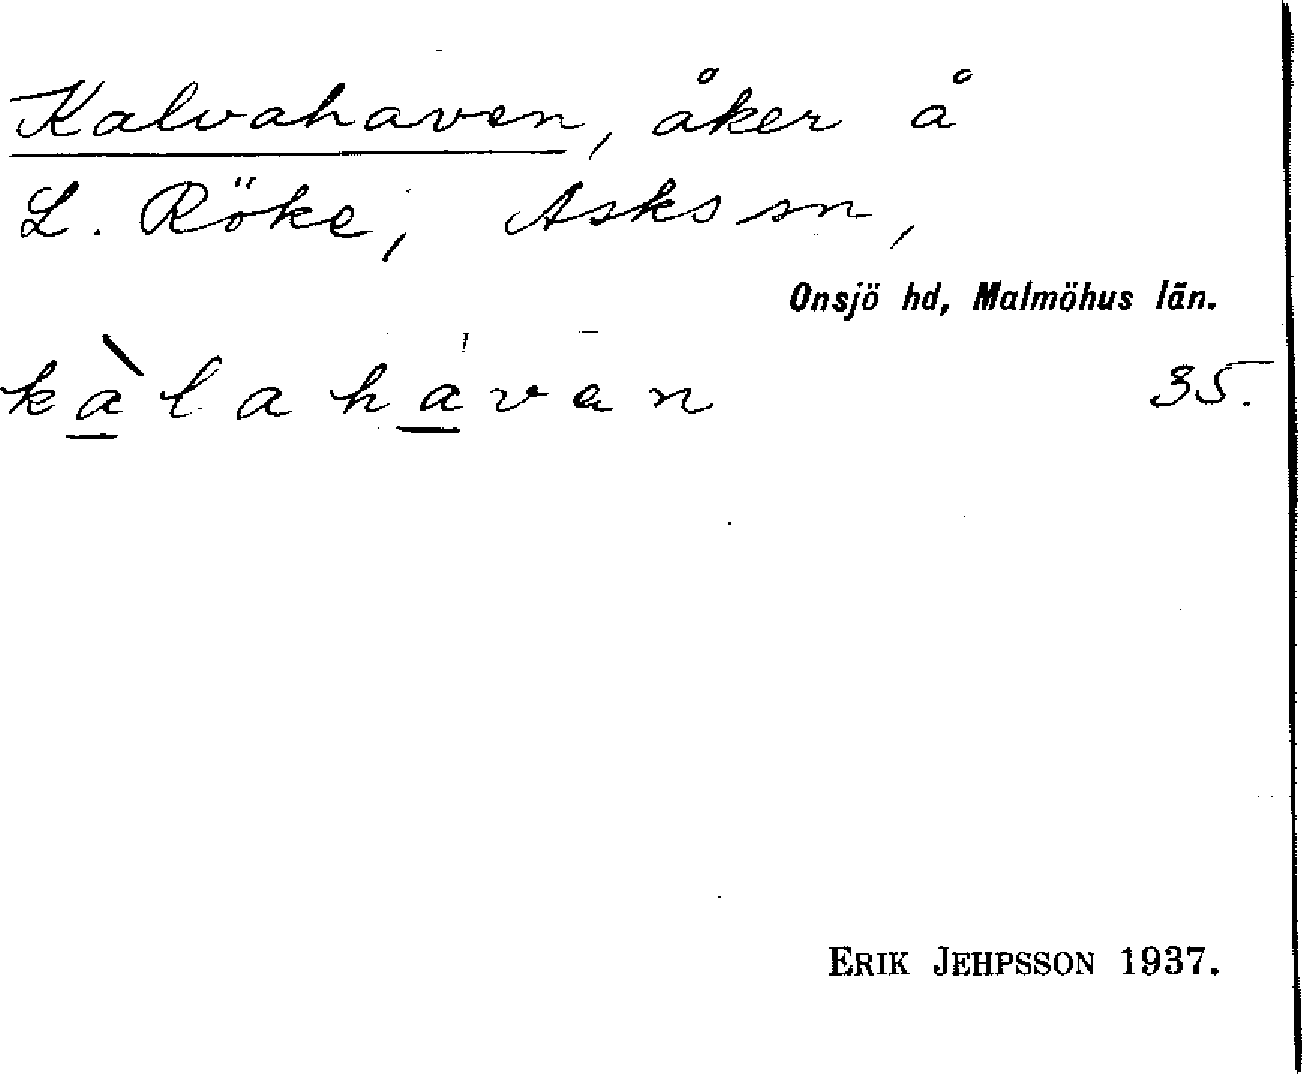 Kalvahaven, åker å
L. Röke, Asks sn,
Onsjö hd, Malmöhus län.
kàlahávan 35.
ERIK JEHPSSON 1937.